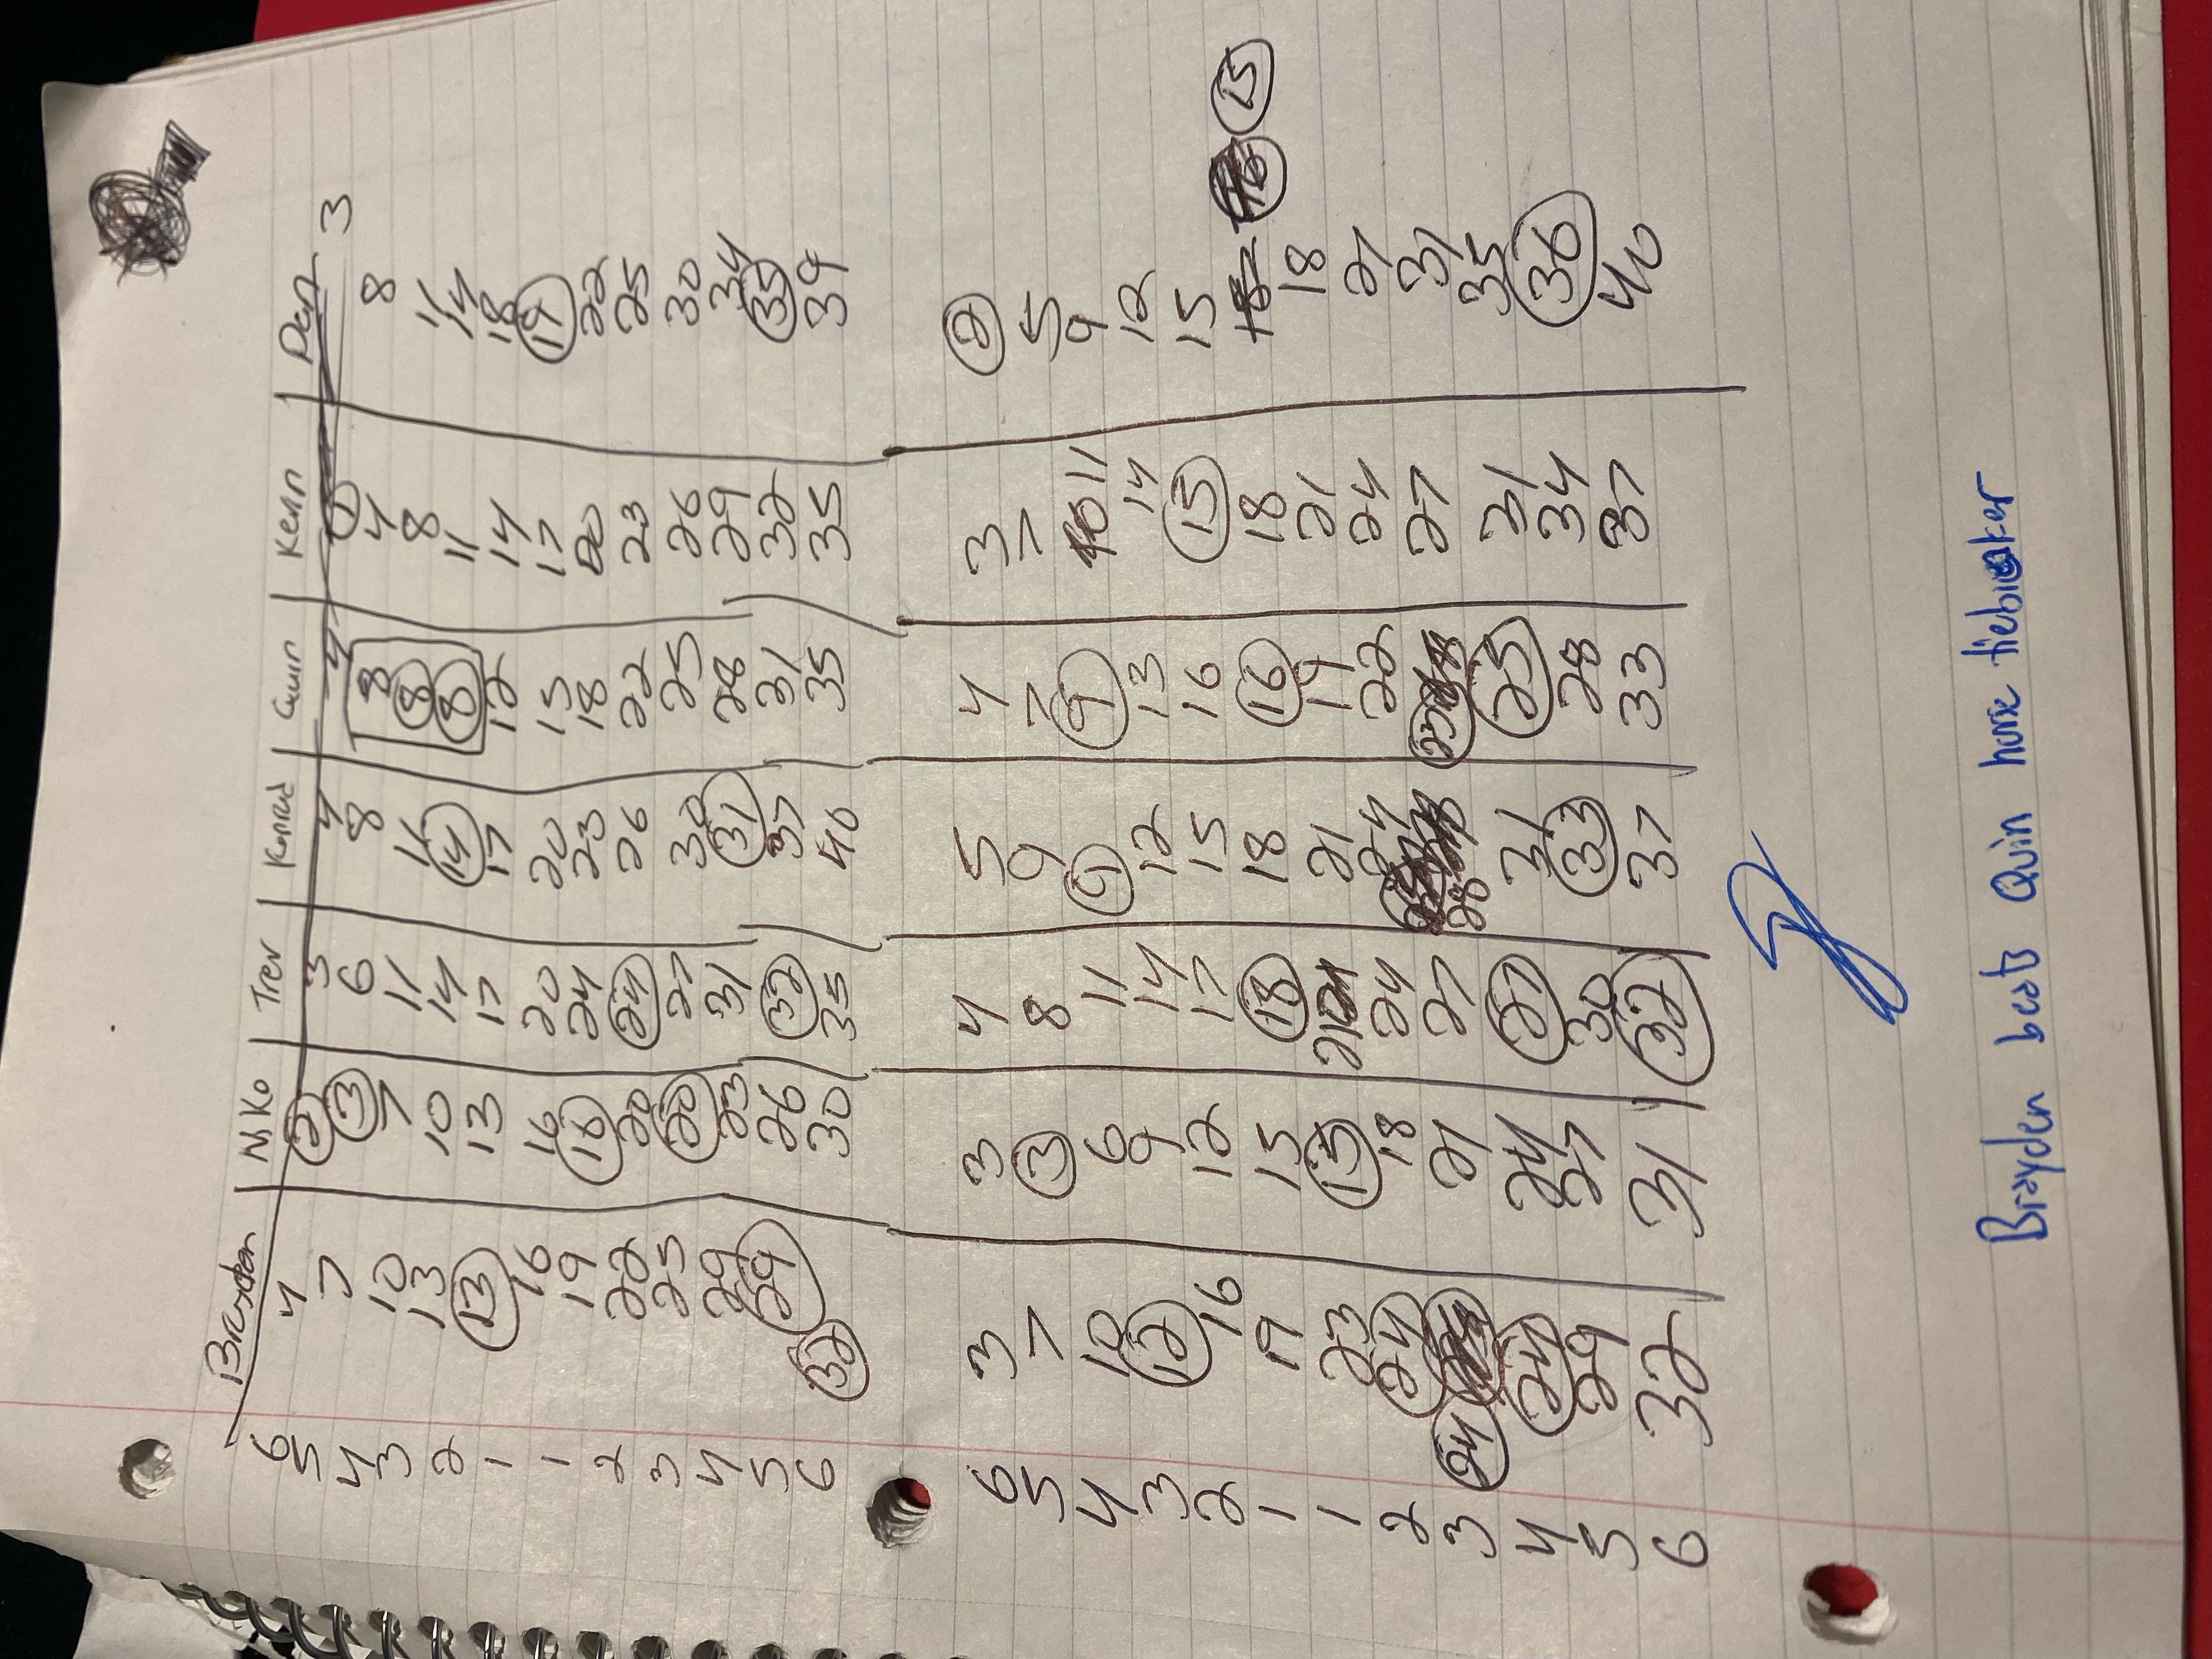 Brayden Niko Trev Konrad Quin Kevin Dan
6 4 2 3 4 4 1 3
5 7 3 6 8 8 4 8
4 10 7 11 11 8 8 11
3 13 10 14 14 8 11 14
2 13 13 17 17 12 14 18
1 16 16 20 20 15 17 19
1 19 16 24 23 18 20 22
2 22 20 24 26 22 23 25
3 25 20 27 30 25 26 30
4 29 23 31 31 28 29 34
5 29 26 32 37 31 32 35
6 32 30 35 40 35 35 39
6 3 3 4 5 4 3 2
5 7 3 8 9 7 7 5
4 10 6 11 9 9 11 9
3 12 9 14 12 13 14 12
2 16 12 17 15 16 15 15
1 19 15 18 18 16 18 18 15
1 23 15 21 21 19 21 18
2 24 18 24 24 22 24 21
3 24 21 27 28 23 27 31
4 24 24 27 31 25 31 35
5 29 27 30 33 28 34 36
6 32 31 32 37 33 37 40
8
Brayden beats Quin horse tiebreaker